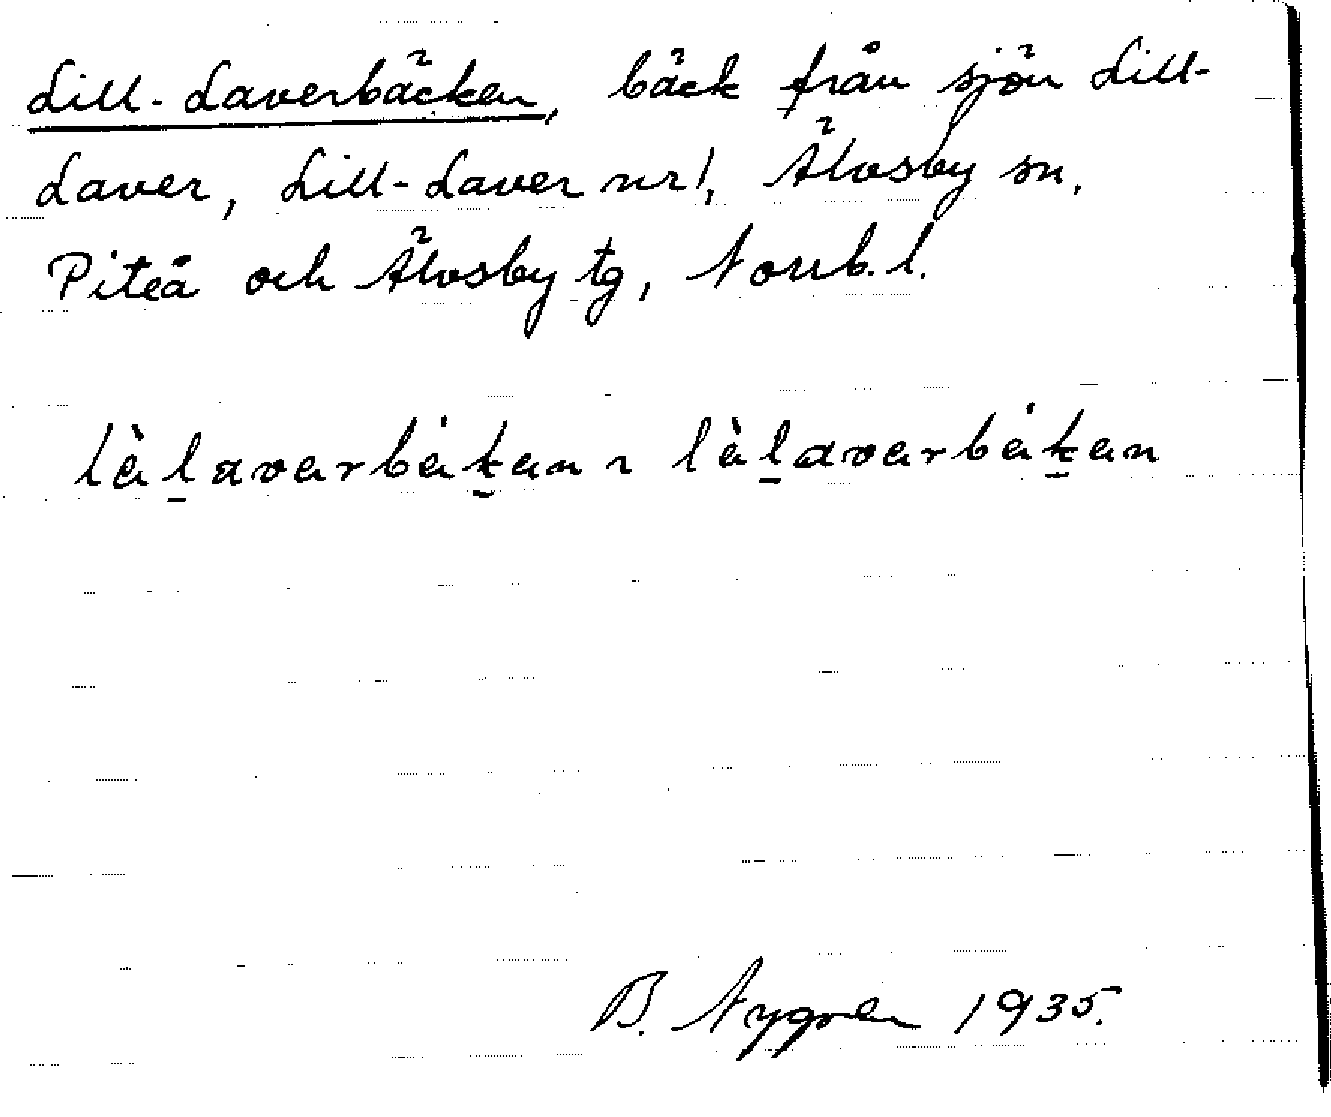 Lill-Laverbäcken, bäck från sjön Lill-
Laver, Lill-Laver nr 1, Älvsby sn,
Piteå och Älvsby tg, Norrb. l.
lèlavarbékan ~ lèlavarbékan
B. Nygren 1935.